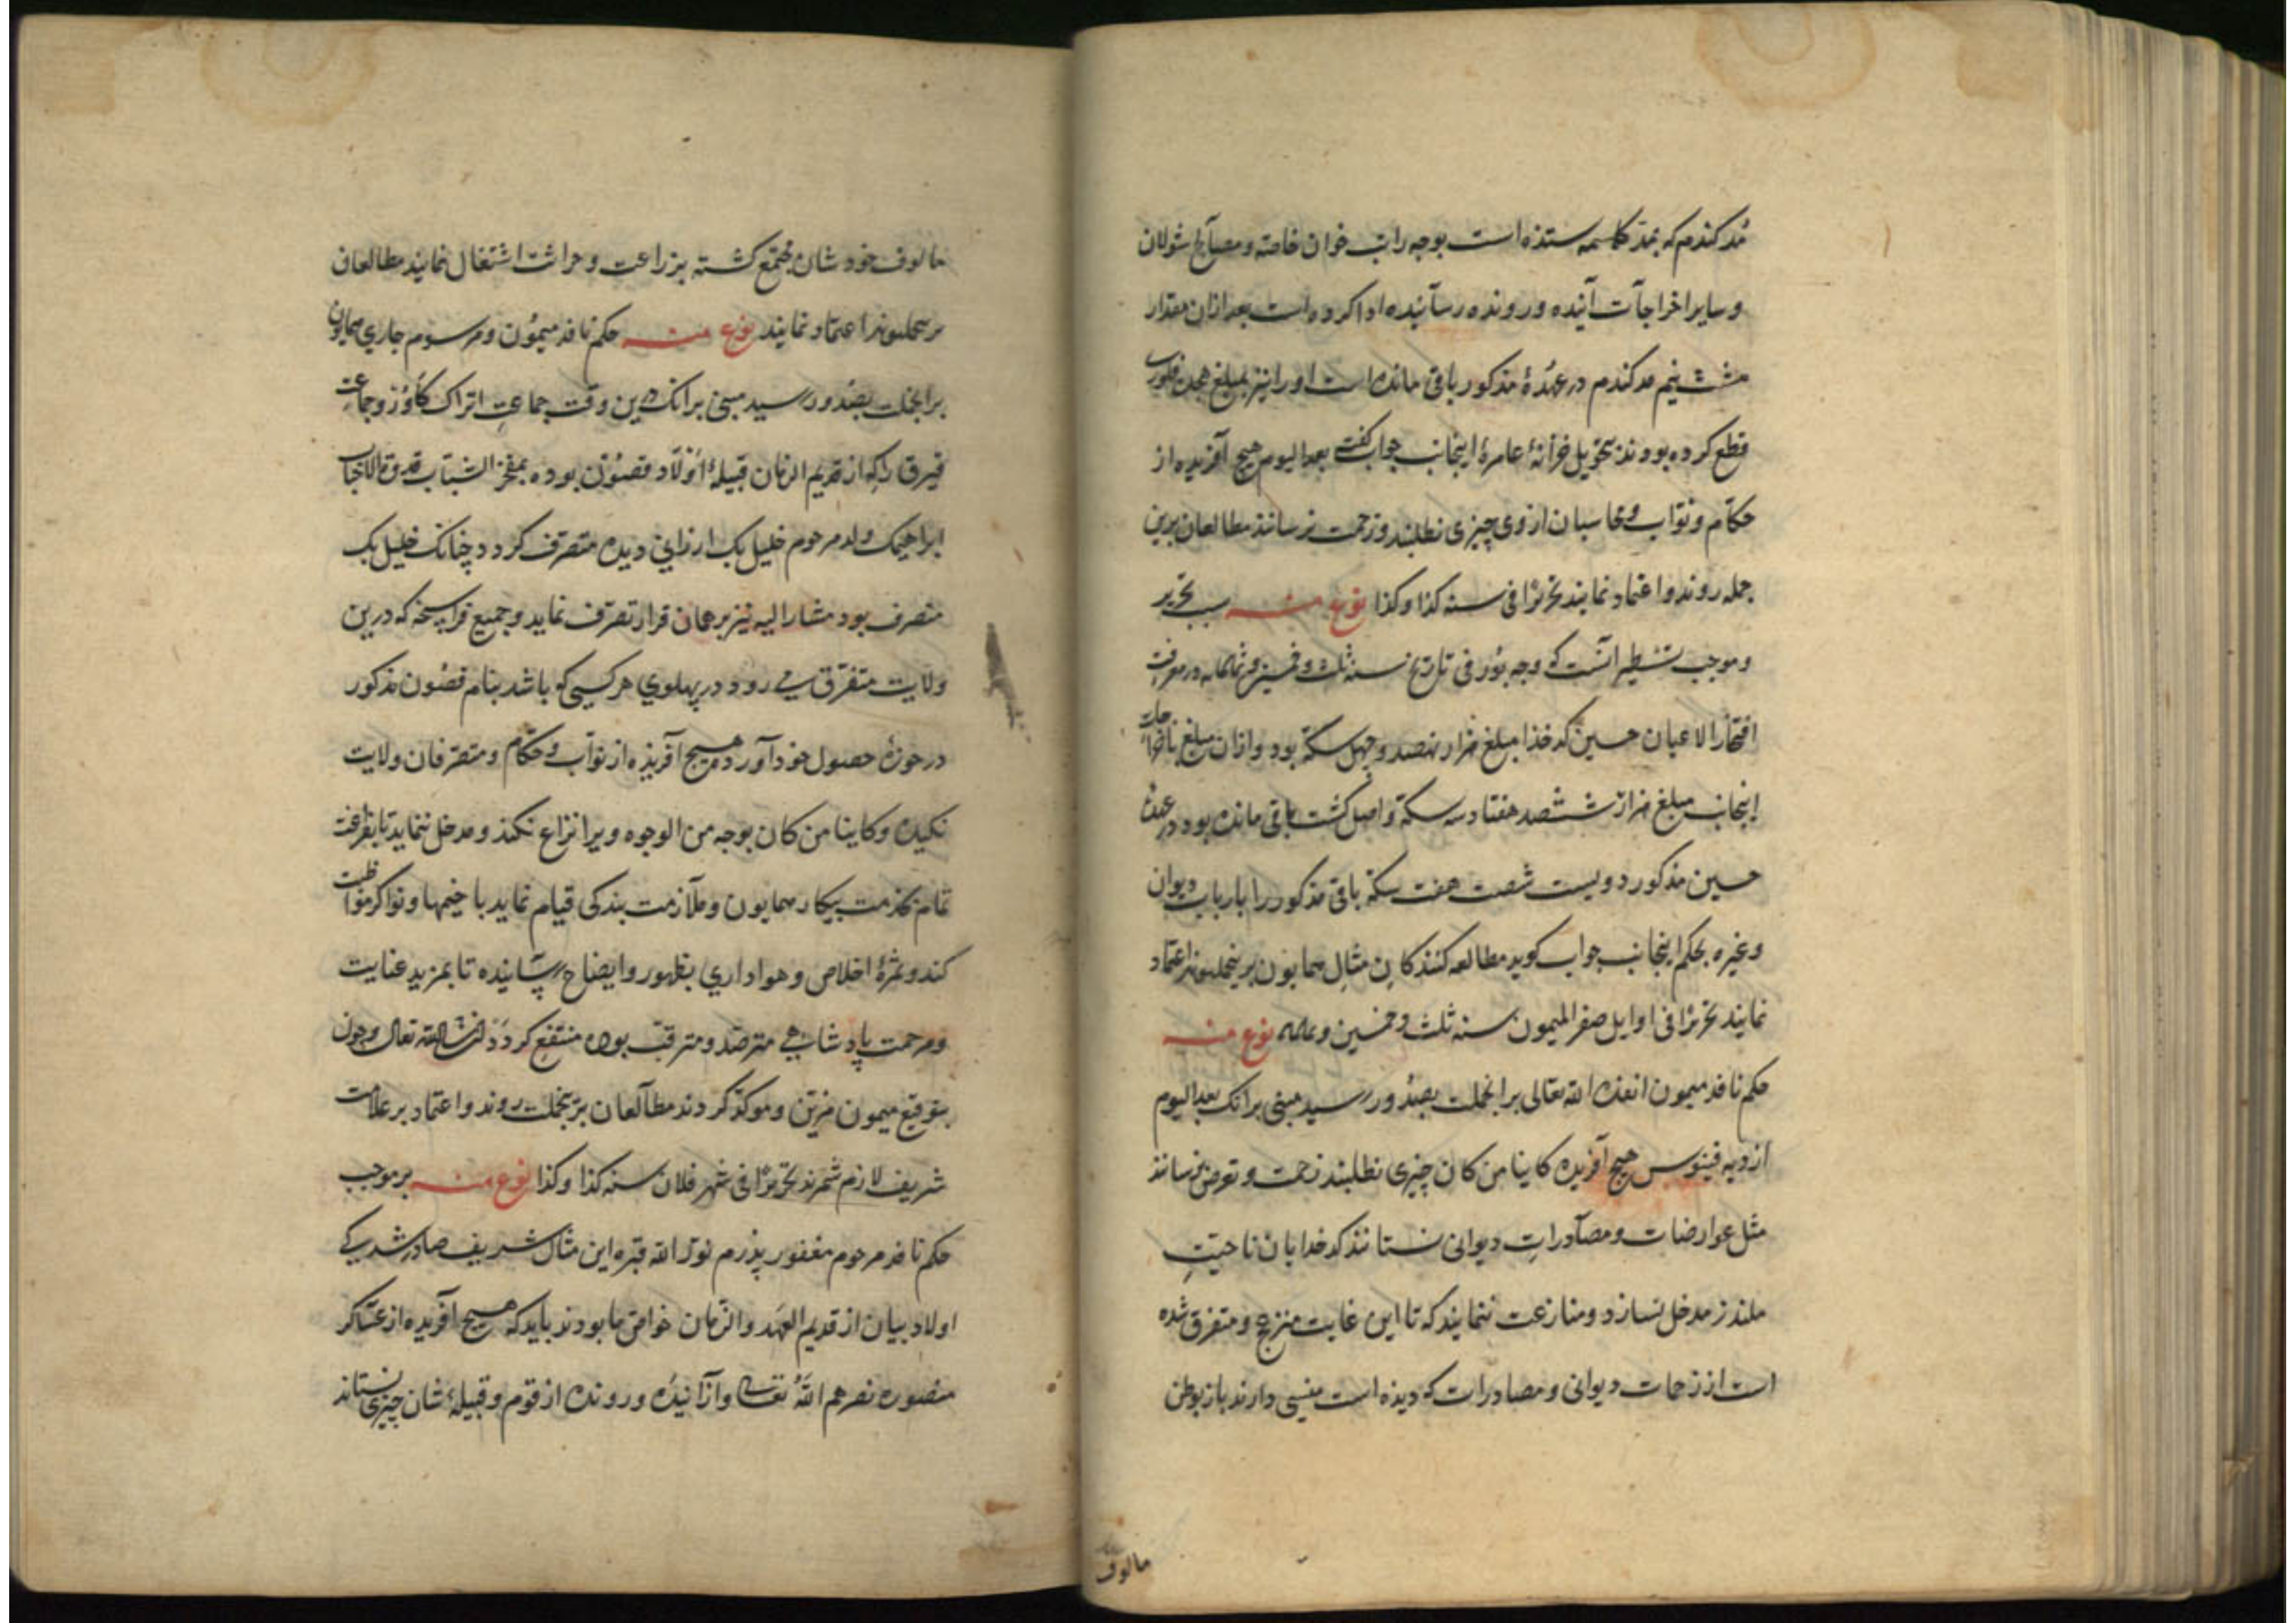 مُد کندم که بمد کاسمه ستذه است بوجه راتب خوان خاصّه ومصالح شولان
وسایر اخراجات آینده ورونده رسانیده ادا کرده است بعد ازان مقدار
شش نیم مد کندم در عهدۀ مذکور باقی مانده است اورا نیز بمبلغ
قطع کرده بودند بتحویل خزانۀ عامرۀ اینجانب جواب کفت بعد الیوم هیچ آفریده از
حکام ونوّاب ومحاسبان از وی چیزی نطلبند وزحمت نرسانند مطالعان برین
جمله روند واعتماد نمایند تحریرًا فی سنه کذا وکذا نوع منه سبب تحریر
وموجب تسطیر آنست که وجه بُوْر فی تاریخ سنه ثلث وخمسین وثمانمایه در معرفت
افتخار الاعیان حسین کدخذا مبلغ هزار نهصد وچهل سکّه بود وازان مبلغ باخراجات
اینجانب مبلغ هزار ششصد هفتاد سه سکّه واصل کشت باقی مانده بود در عهدۀ
حسین مذکور دویست شصت هفت سکّه باقی مذکور را بارباب دیوان
وغیره بحکم اینجانب جواب کوید مطالعه کنندکان مثالِ همایون برینجملت روند اعتماد
نمایند تحریرًا فی اوایل صفر المیمون سنه ثلث وخمسین وثمانمایه نوع منه
حکم نافذ میمون انفذه الله تعالی برانجملت بصدُور رسید مبنی برانک بعد الیوم
از دیه فینوس هیچ آفریده کاینا من کان چیزی نطلبند زحمت وتعرض نرسانند
مثل عوارضات ومصادراتِ دیوانی نستانند کدخدایان ناحیتِ
ملندز مدخل نسازد ومنازعت ننمایند که تا این غایت منزعج ومتفرق شده
است از زحمات دیوانی ومصادرات که دیذه است منسی دارند باز بوطن
مالوف
مالوف خود شان مجتمع کشته بزراعت وحراثت اشتغال نمایند مطالعان
برینجملت روند اعتماد نمایند نوع منه حکم نافذ میمُون ومرسوم جاری همایون
برانجملت بصُدور رسید مبنی برانک درین وقت جماعتِ اتراک کاوُز وجماعت
قیرق راکه از قدیم الزمان قبیلۀ اَوْلاد قصنُون بوده بمفخر الشباب قدوة الانجاب
ابراهیمبک ولد مرحوم خلیل بک ارزانی دیده متصرف کردد چنانک خلیل بک
متصرف بود مشار الیه نیز برهمان قرار تصرّف نماید وجمیع قراسخه که درین
ولایت متفرّق می رود در پهلوی هر کسی که باشد بنام قصُون مذکور
در حوزۀ حصول خود آورد هیچ آفریذه از نوّاب وحکّام ومتصرّفان ولایت
نکیده وکاینا من کان بوجه من الوجوه ویرا نزاع نکند ومدخل ننماید تا بفراغت
تمام بخدمت بیکار همایون وملازمت بندکی قیام نماید با خیمها ونواکر مواظبت
کند وثمرۀ اخلاص وهواداری بظهور وایضاح رسانیده تا بمزید عنایت
ومرحمت پادشاهی مترصّد ومترقّب بوده منتفع کردد ان شالله تعالی وچون
بتوقیع میمون مزیّن وموکّد کردند مطالعان برینجملت روند واعتماد بر علامت
شریف لازم شمرند تحریرًا فی شهر فلان سنه کذا وکذا نوع منه برموجب
حکم نافذ مرحوم مغفور پذرم نوّر الله قبره این مثال شریف صادر شد کی
اولاد بیان از قدیم العهد والزّمان خواص ما بودند باید که هیچ آفریده از عساکر
منصوره نصرهم الله تعالی واز آینده ورونده از قوم وقبیلۀ شان چیزی نستانند